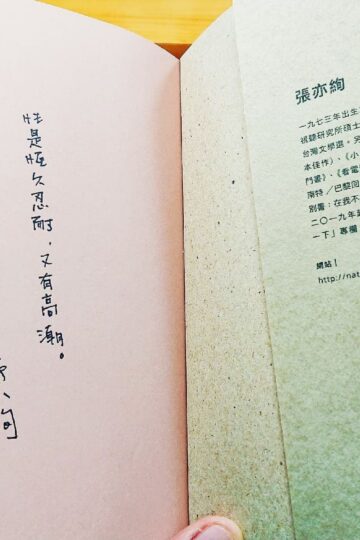 性是恆久忍耐，又有高潮。
張亦絢
一九七三年出生
視聽研究所碩士
台灣文學選。另
本佳作）、《小
門書》、《看電
南特／巴黎回
別冊：在我不
二〇一九年起
一下」專欄
網站｜
http://nat